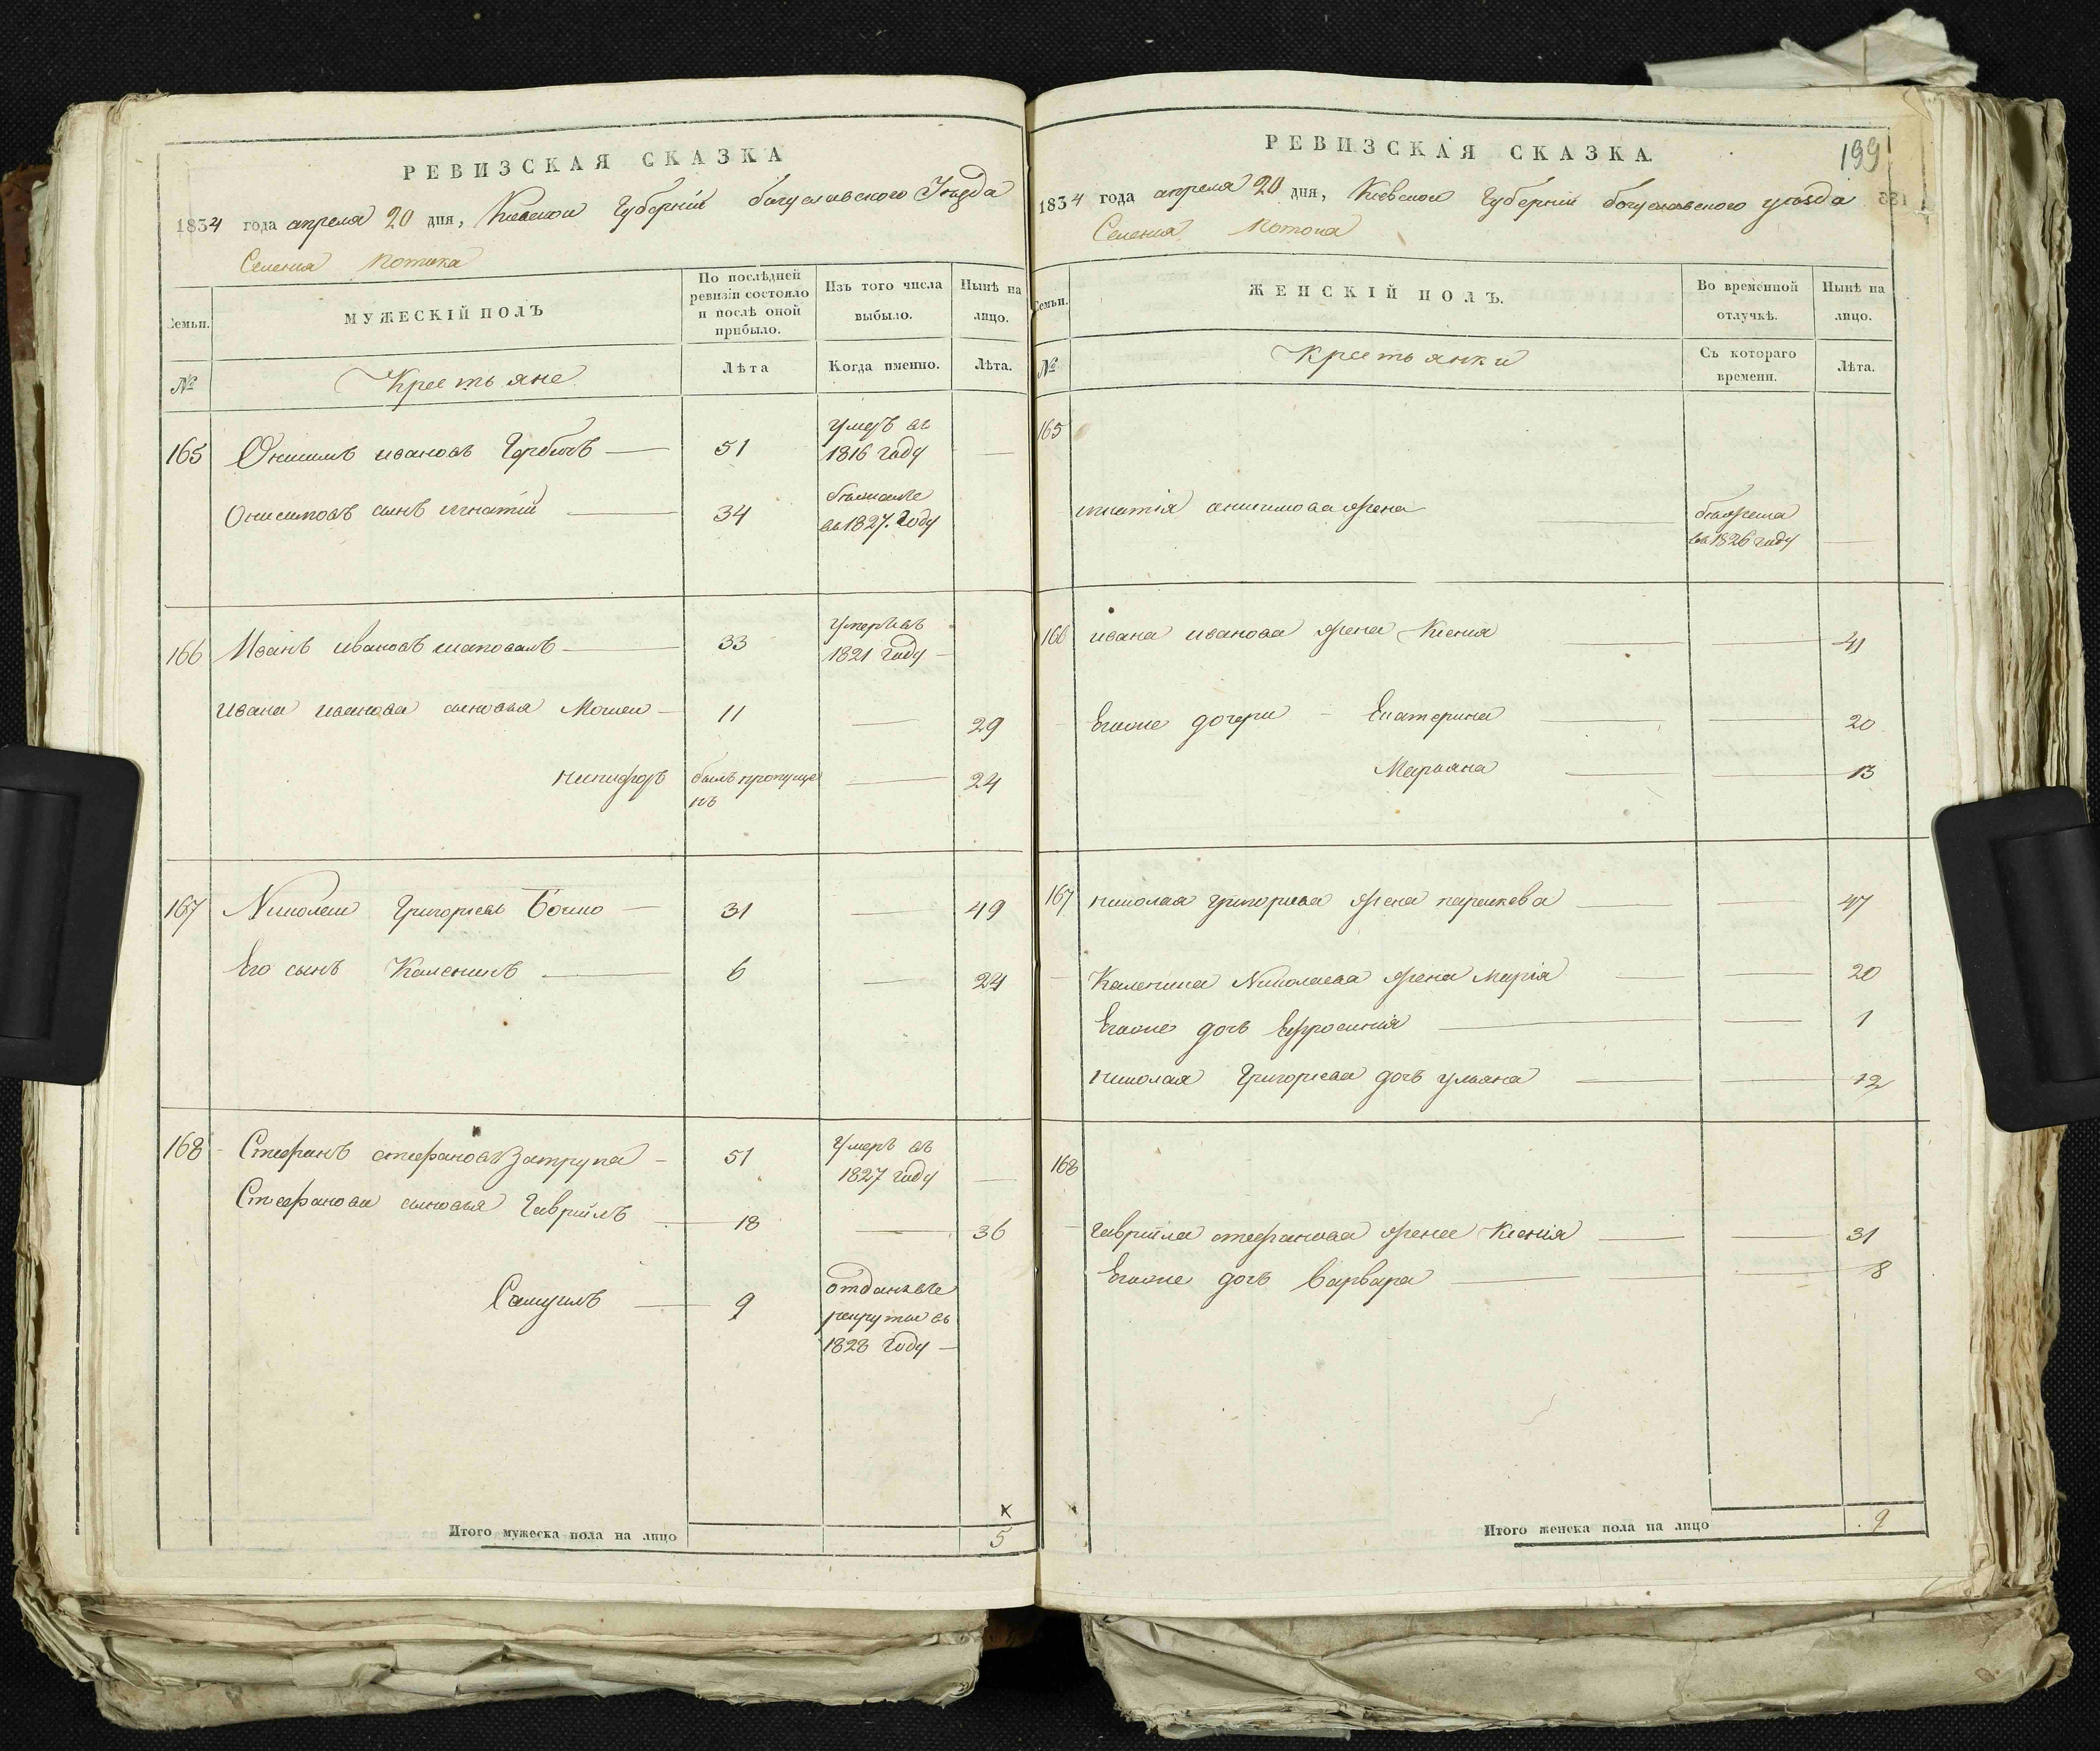 РЕВИЗСКАЯ СКАЗКА
1834 года апреля 20 дня, Киевской Губерніи богуславского Уѣзда
Селенія Потока
Семьи.
МУЖЕСКІЙ ПОЛЪ
По послѣдней ревизіи состояло и послѣ оной прибыло.
Изъ того числа выбыло.
Нынѣ на лицо.
№
Крестьяне
Лѣта
Когда именно.
Лѣта.
165 Онисимъ ивановъ — 51 умеръ въ 1816 году —
Онисимовъ сынъ игнатій — 34 въ 1827. Году
166 Иванъ ивановъ шаповалъ — 33 умеръ въ 1821 Году —
ивана иванова сыновья Мойсей — 11 — 29
никифоръ былъ пропущенъ — 24
167 Николай Григорьевъ Бочко — 31 — 49
Его сынъ Каленикъ — 6 — 24
168 Стефанъ стефановъ Затрупа — 51 умеръ въ 1827 году —
Стефанова сыновья Гаврійлъ — 18 — 36
Самуилъ — 9 отданъ въ рекруты въ 1828 Году —
х
Итого мужеска пола на лицо 5
199
РЕВИЗСКАЯ СКАЗКА.
1834 года апреля 20 дня, Киевской Губерніи богуславского уѣзда
Селенія Потока
Семьи.
ЖЕНСКІЙ ПОЛЪ.
Во временной отлучкѣ.
Нынѣ на лицо.
№
Крестьянки
Съ котораго времени.
Лѣта.
165
игнатія онисимова жена — бѣжала въ 1826 году —
166 ивана иванова жена Ксенія — — 41
Егоже дочери — Екатерина — — 20
Марьяна — — 13
167 николая григорьева жена параскева — — 47
Каленика Николаева жена Марія — — 20
Егоже дочь Евфросинія — — 1
николая Григорьева дочь ульяна — — 12
168
гаврійла стефанова жена Ксенія — — 31
Егоже дочь варвара — — 8
Итого женска пола на лицо 9